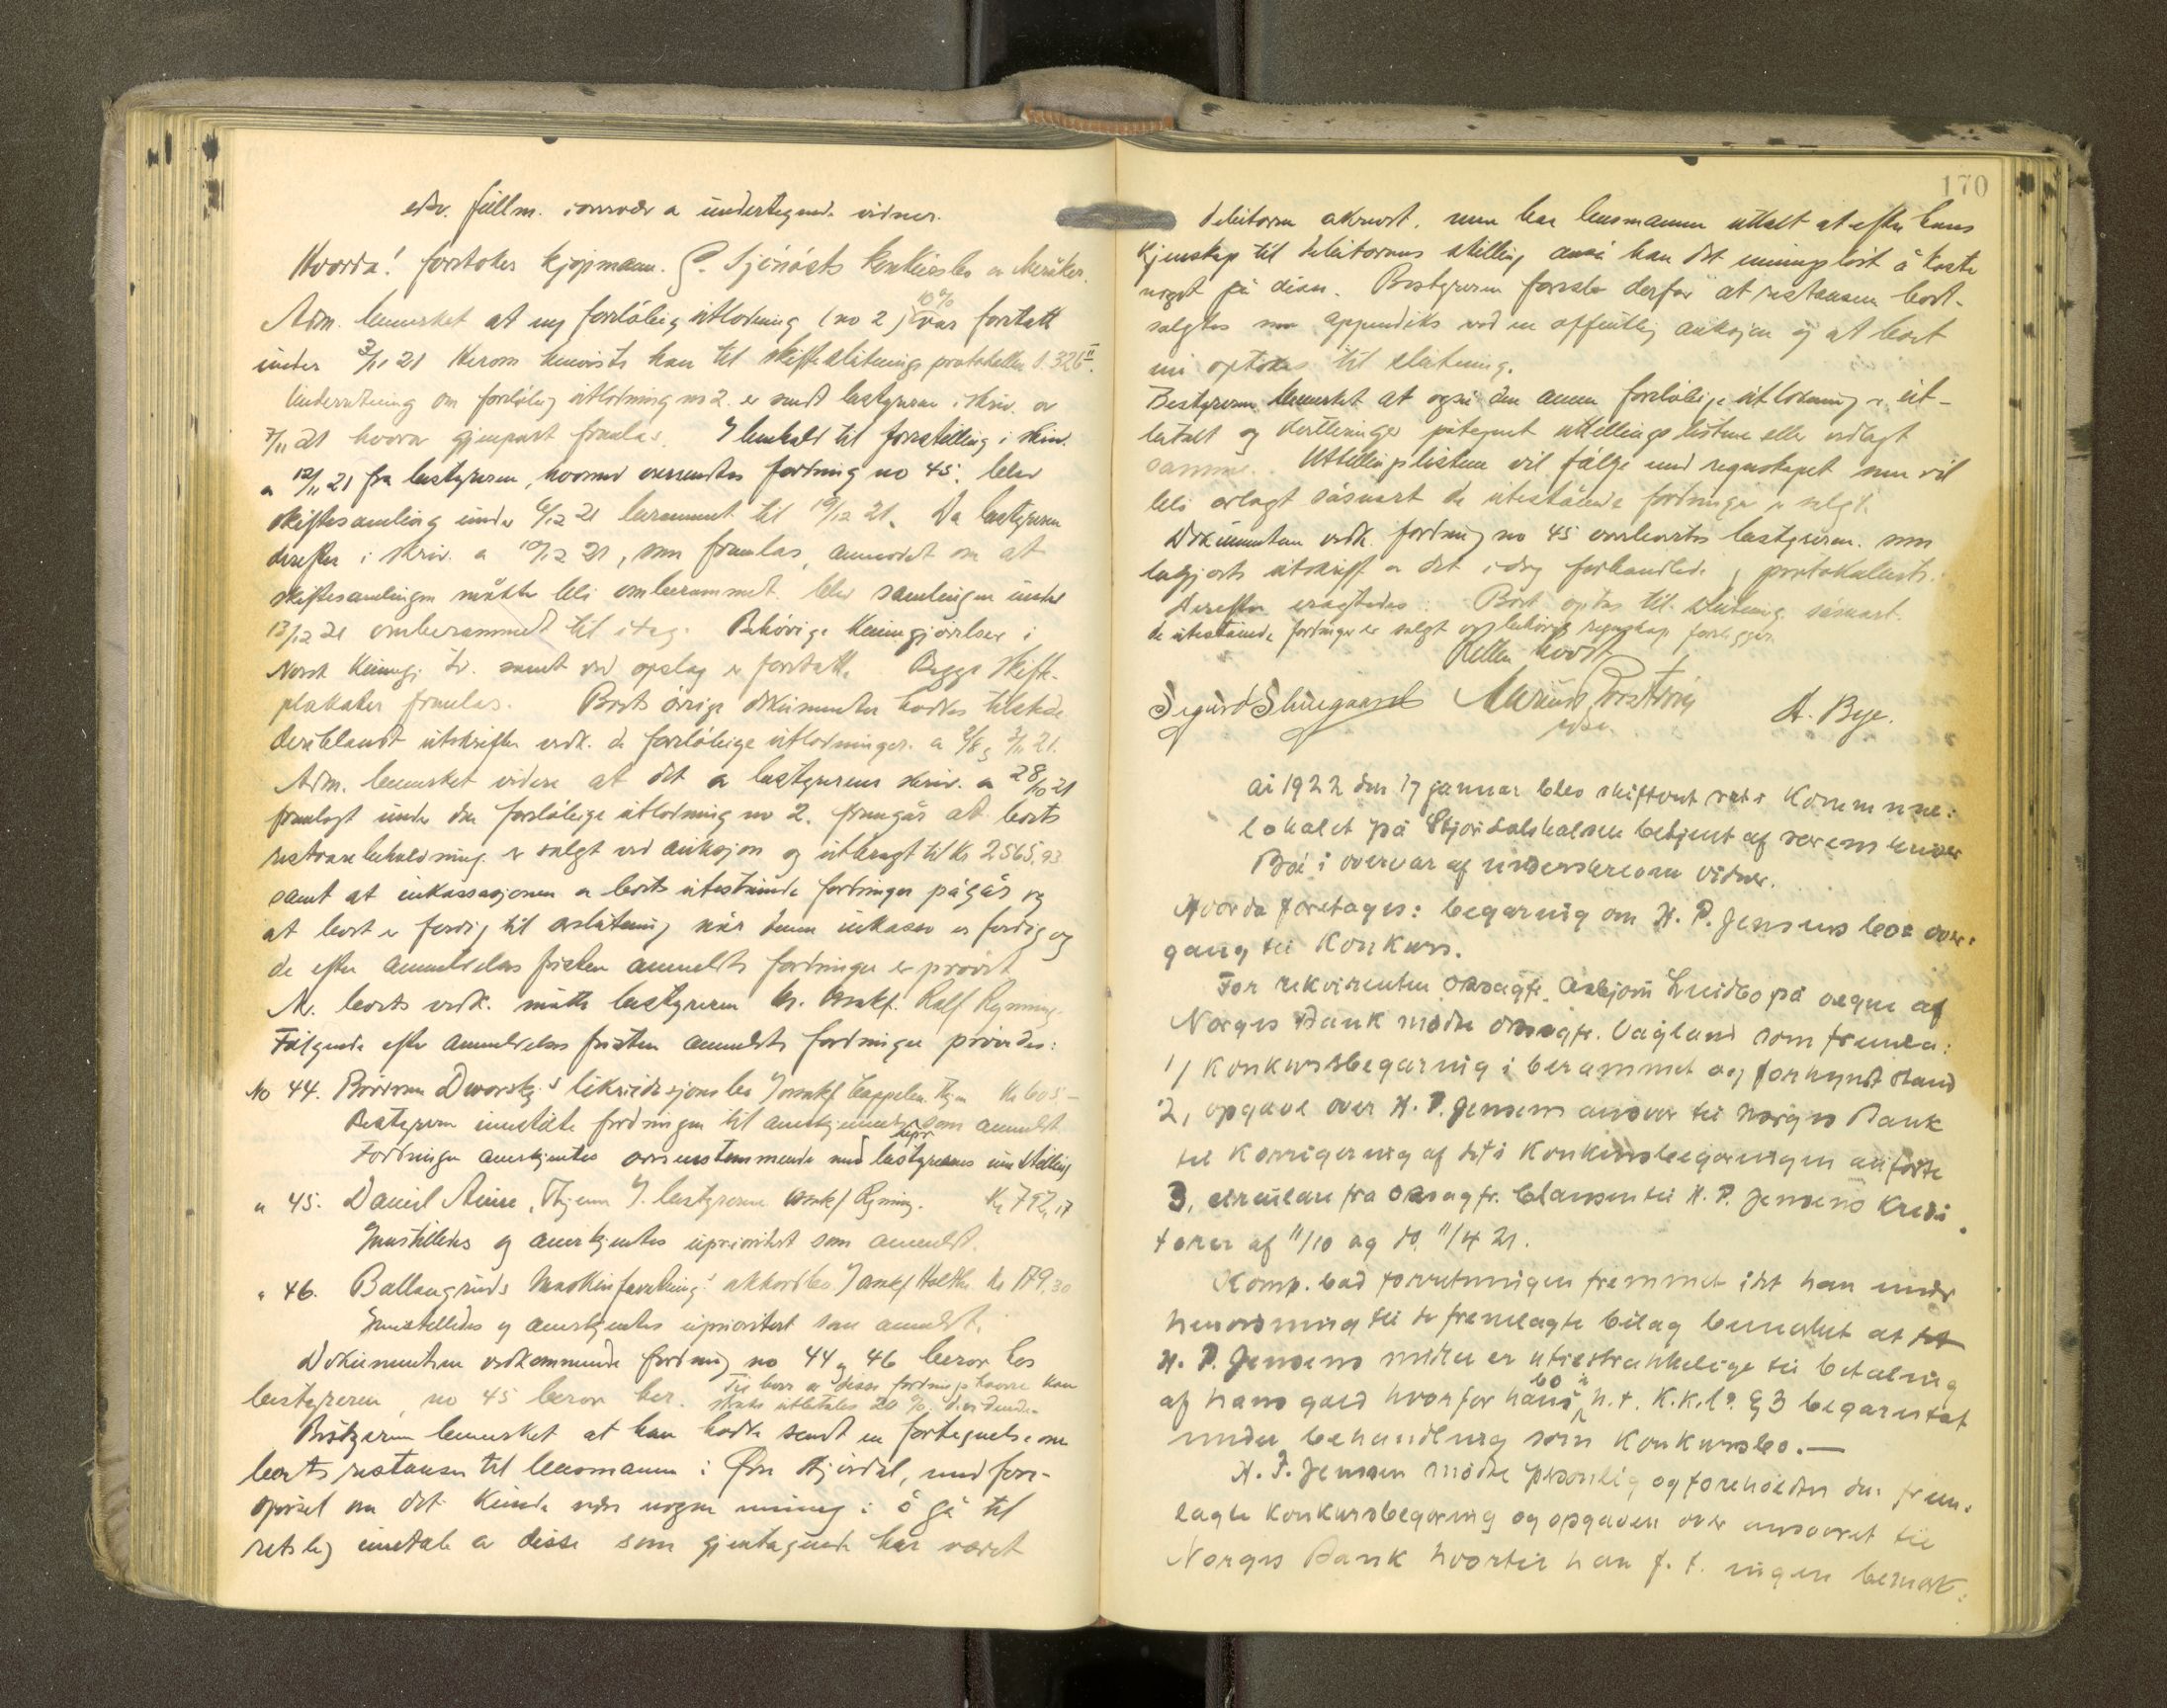 edv. fullm. i overvær a undertegnede vidner.
Hvorda! foretokes kjøpmann P. Sjönösts konkursbo av Meråker.
Adm. bemerket at ny foreløbig utlodning (no 2) 10% var foretatt
under 3/11 21 hvorom henvistes han til skiftesluttnings protokollen s. 326
Underretning om foreløbig utlodning no 2. er sendt bestyreren i skriv. av
7/11 21 hvorav gjenpart fremlas. I henhold til forestilling i skriv.
a 12/11 21 fra bestyreren, hvormed oversendtes fordring no 45. blev
skiftesamling under 6/12 21 berammet til 19/12 21. Da bestyreren
derefter i skriv. a 10/12 21, som fremlas, anmodet om at
skiftesamlingen måtte bli omberammet. blev samlingen under
13/12 21 omberammet til idag. Behörige kunngjörelser i
Norsk Kunngj. td. samt ved opslag er foretatt. Begge skifte-
plakater fremlas. Boets övrige dokumenter hadtes tilstede
deriblandt utskrifter vedk. de foreløbige utlodninger a 2/8 og 3/11 21.
Adm. bemerket videre at det a bestyrerens skriv. a 28/10 21
fremlagt under den foreløbige utlodning no 2. fremgår at boets
restvarebeholdning er solgt ved auksjon og utbragt til Kr 2565,93
samt at inkassasjonen a boets utestående fordringer pågår og
at boet er ferdig til avslutning når denne inkasso er ferdig og
de efter anmeldelses fristen anmeldte fordringer er prøvet
A. boets vedk. møtte bestyreren hr. Orsakf. Rolf Rynning.
Følgende efter anmeldelses fristen anmeldte fordringer prøvedes:
No 44. Brödrene Dworsky's likvidasjonsbo v/orsakf Cappelen. Thjem Kr 605,-
Bestyreren innstillte fordringen til anerkjennelse upr som anmeldt
Fordringen anerkjentes overenstemmende med bestyrerens innstilling
" 45. Daniel Aune, Thjem v/ bestyreren orsakf Rynning. Kr 792,17
Innstilledes og anerkjentes uprioritert som anmeldt.
" 46. Ballangruds Maskinforretning's akkordbo v/orsakf Holthe Kr 179,30
Innstilledes og anerkjentes uprioritert som anmeldt.
Dokumentene vedkommende fordring no 44 og 46 beror hos
bestyreren, no 45 beror her. Til hver av disse fordringshavere kan
straks utbetales 20 % dividende.
Bestyreren bemerket at han hadde sendt en fortegnelse over
boets restanser til lensmannen i Övre Stjördal, med fore-
spörsel om det kunde være nogen mening i å gå til
retslig inntale av disse som gjentagende har været
170
debitorene akrevet. men har lensmannen uttalt at efter hans
kjenskap til debitorenes stilling anså han det meningslöst å koste
noget på disse. Bestyreren foreslo derfor at restansene bort-
solgtes som appendiks ved en offentlig auksjon og at boet
nu optokes til slutning.
Bestyreren bemerket at også den annen foreløbige utlodning er ut-
betalt og kvitteringer påtegnet utstillingslistene eller vedlagt
samme. Utstillingslistene vil følge med regnskapet som vil
bli avlagt såsnart de utestående fordringer er solgt.
Dokumentene vedk. fordring no 45 overleverts bestyreren som
begjærte utskrift av det idag forhandlede og protokollerte.
Derefter eragtedes: Boet optas til slutning såsnart
de utestående fordringer er solgt og behörig regnskap foreligger.
Retten hævet
Sigurd Skurgaard A. Bye.
edv.
År 1922 den 17 januar blev skifteret sat i Kommune:
lokalet på Stjördalshalsen betjent af sorenskriver
Bøe i overvær af underskrevne vidner.
Hvorda foretages: begæring om H. P. Jensens bos over:
gang til Konkurs.
For rekvirenten Orsagfr. Asbjørn Lindbo på vegne af
Norges Bank mødte orsagfr. Vågland som fremla:
1) Konkursbegæring i berammet og forkyndt stand
2, opgave over H. P. Jensens ansvar til Norges Bank
til Korrigering af det i Konkursbegæringen anførte
3, cirkulære fra Orsagfr. Clausen til H. P. Jensens Kredi
torer af 11/10 og do. 11/4 21.
Komp. bad forretningen fremmet idet han under
henvisning til de fremlagte bilag bemerket at
H. P. Jensens midler er utilstrækkelige til betaling
af hans gæld hvorfor hans bo i h. t. K.K.l. § 3 begæres tat
under behandling som Konkursbo.—
H. P. Jensen mødte personlig og foreholdtes den frem:
lagte Konkursbegæring og opgaven over ansvaret til
Norges Bank hvortil han f. t. ingen bemærk: